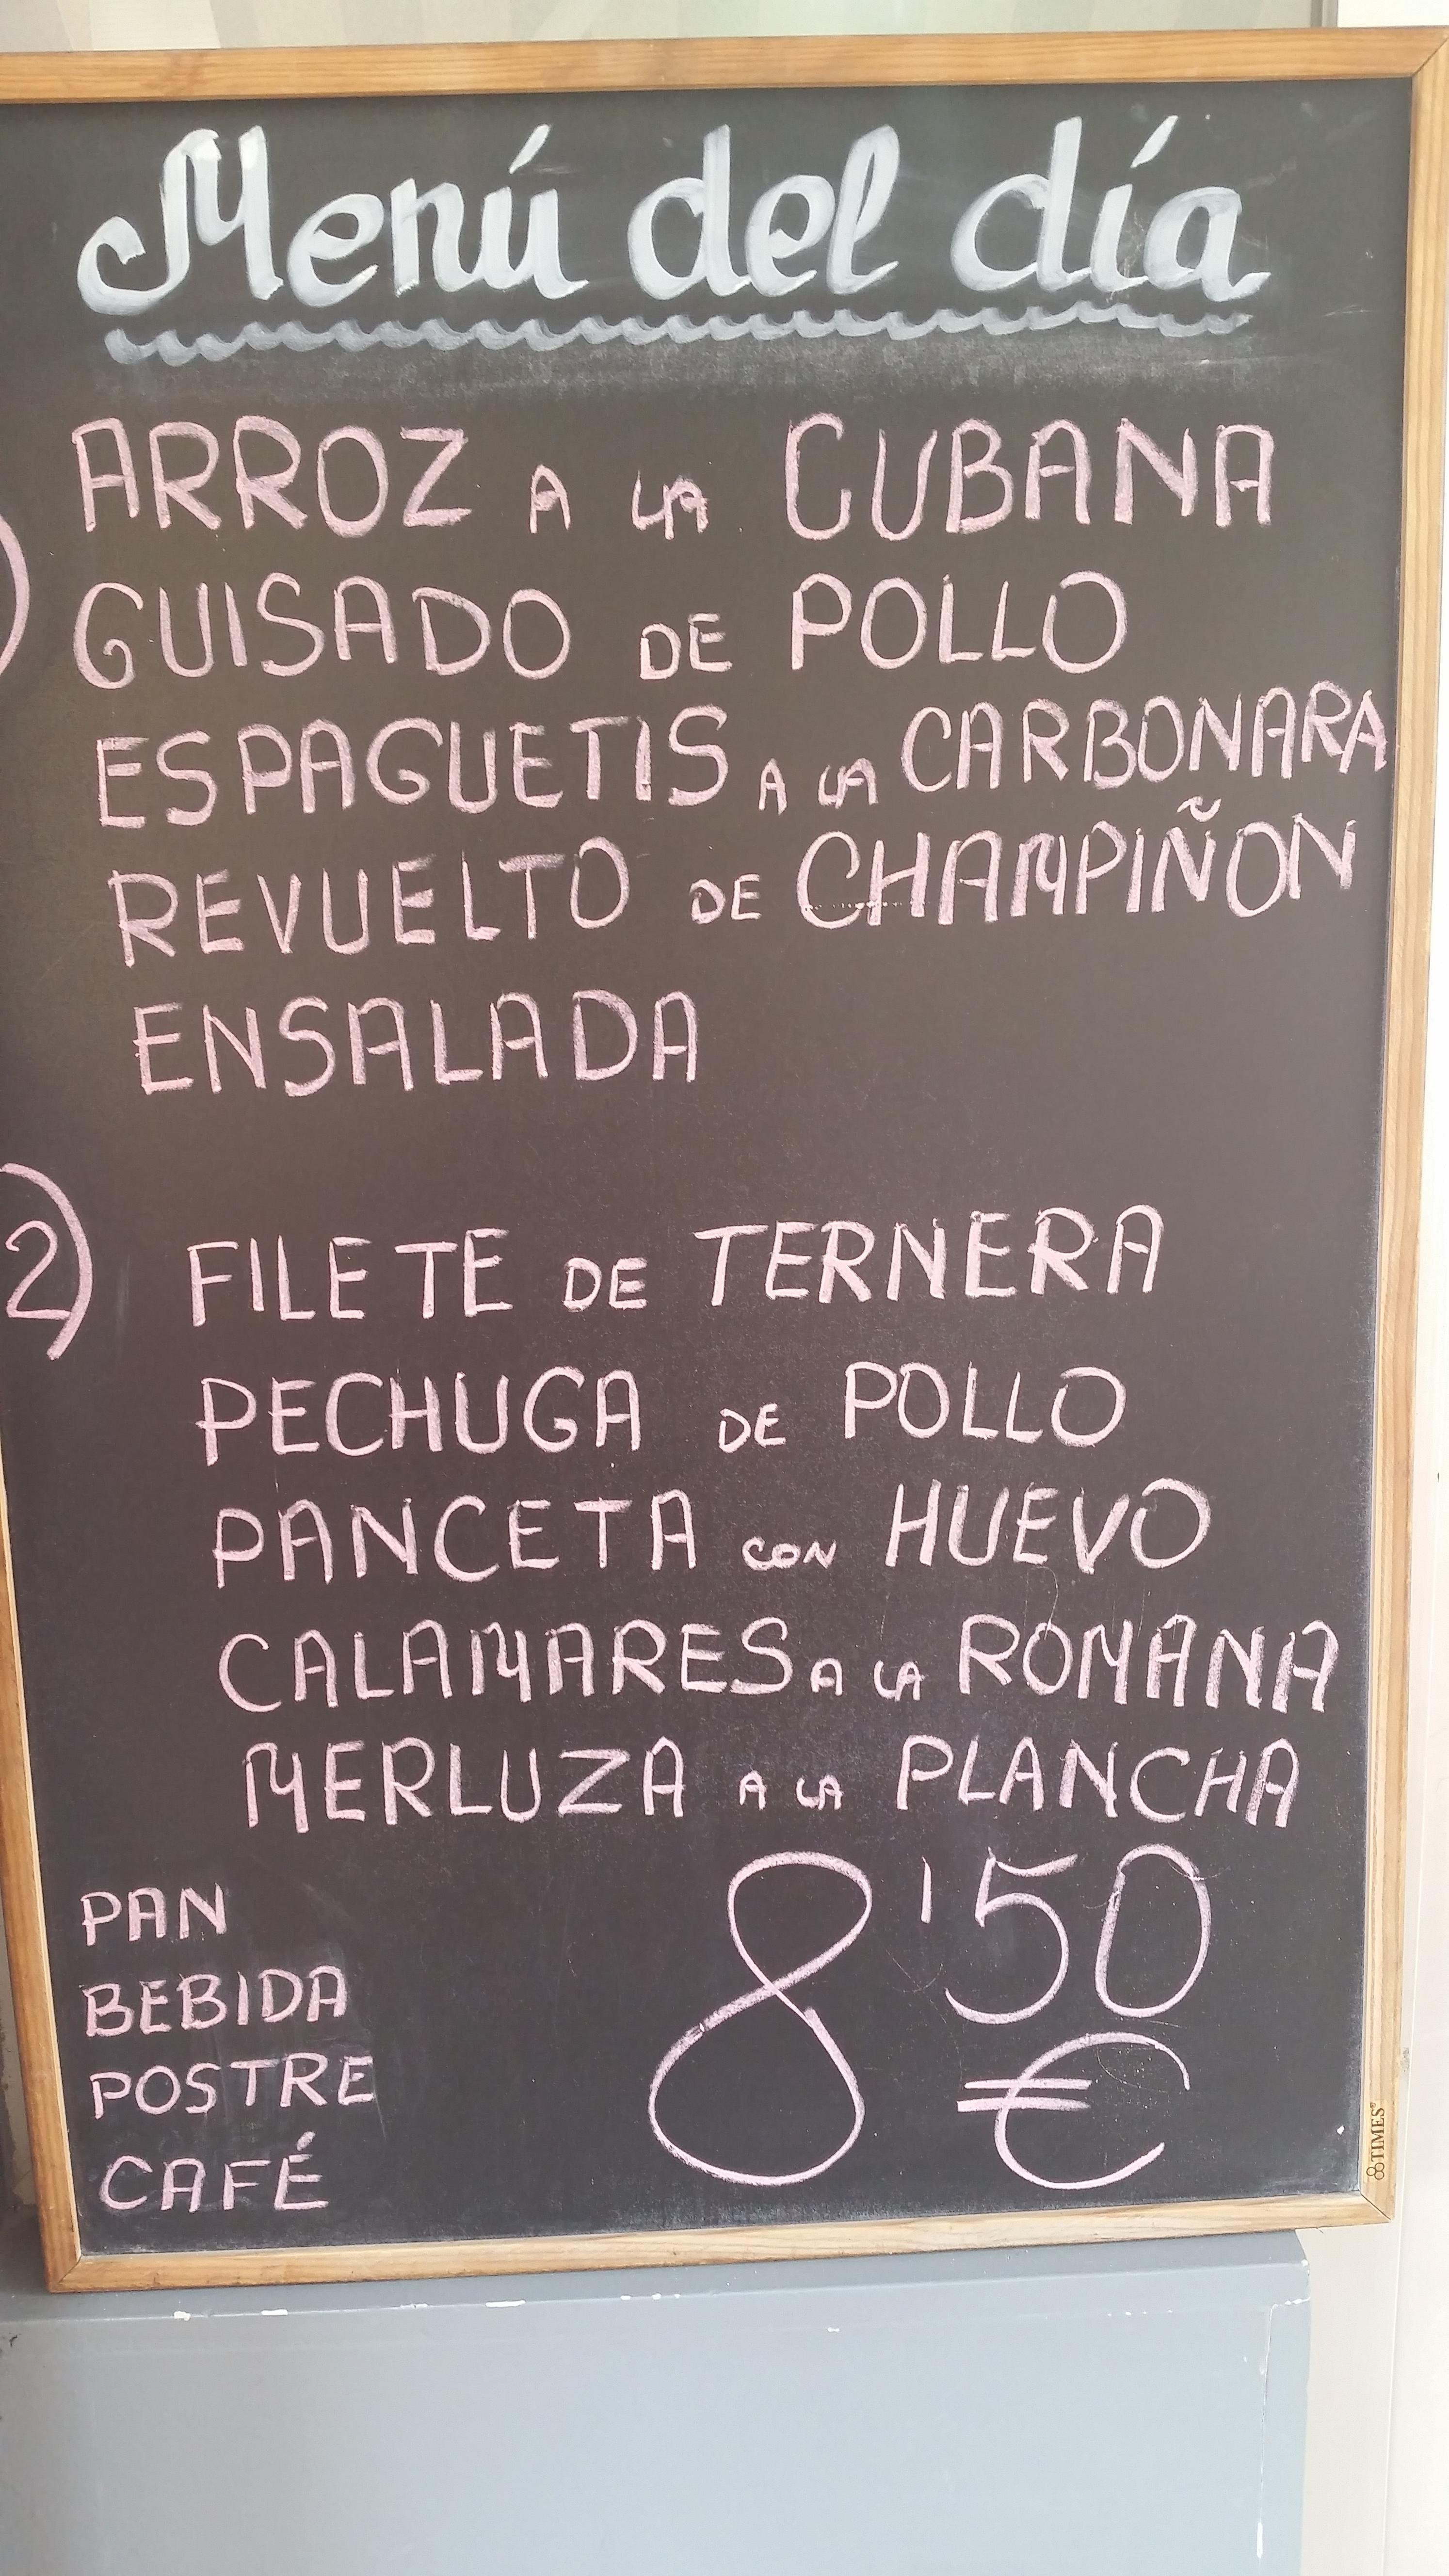 Menú del día
ARROZ A LA CUBANA
) GUISADO DE POLLO
ESPAGUETIS A LA CARBONARA
REVUELTO DE CHAMPIÑON
ENSALADA
2) FILETE DE TERNERA
PECHUGA DE POLLO
PANCETA CON HUEVO
CALAMARES A LA ROMANA
MERLUZA A LA PLANCHA
PAN
BEBIDA
POSTRE
CAFÉ
8'50
€
TIMES®